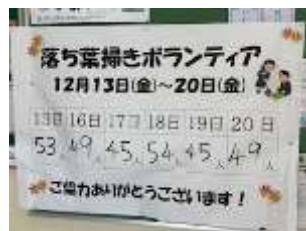 落ち葉掃きボランティア
12月13日(金)～20日(金)
13日 16日 17日 18日 19日 20日
53人 49人 45人 54人 45人 49人
ご協力ありがとうございます！